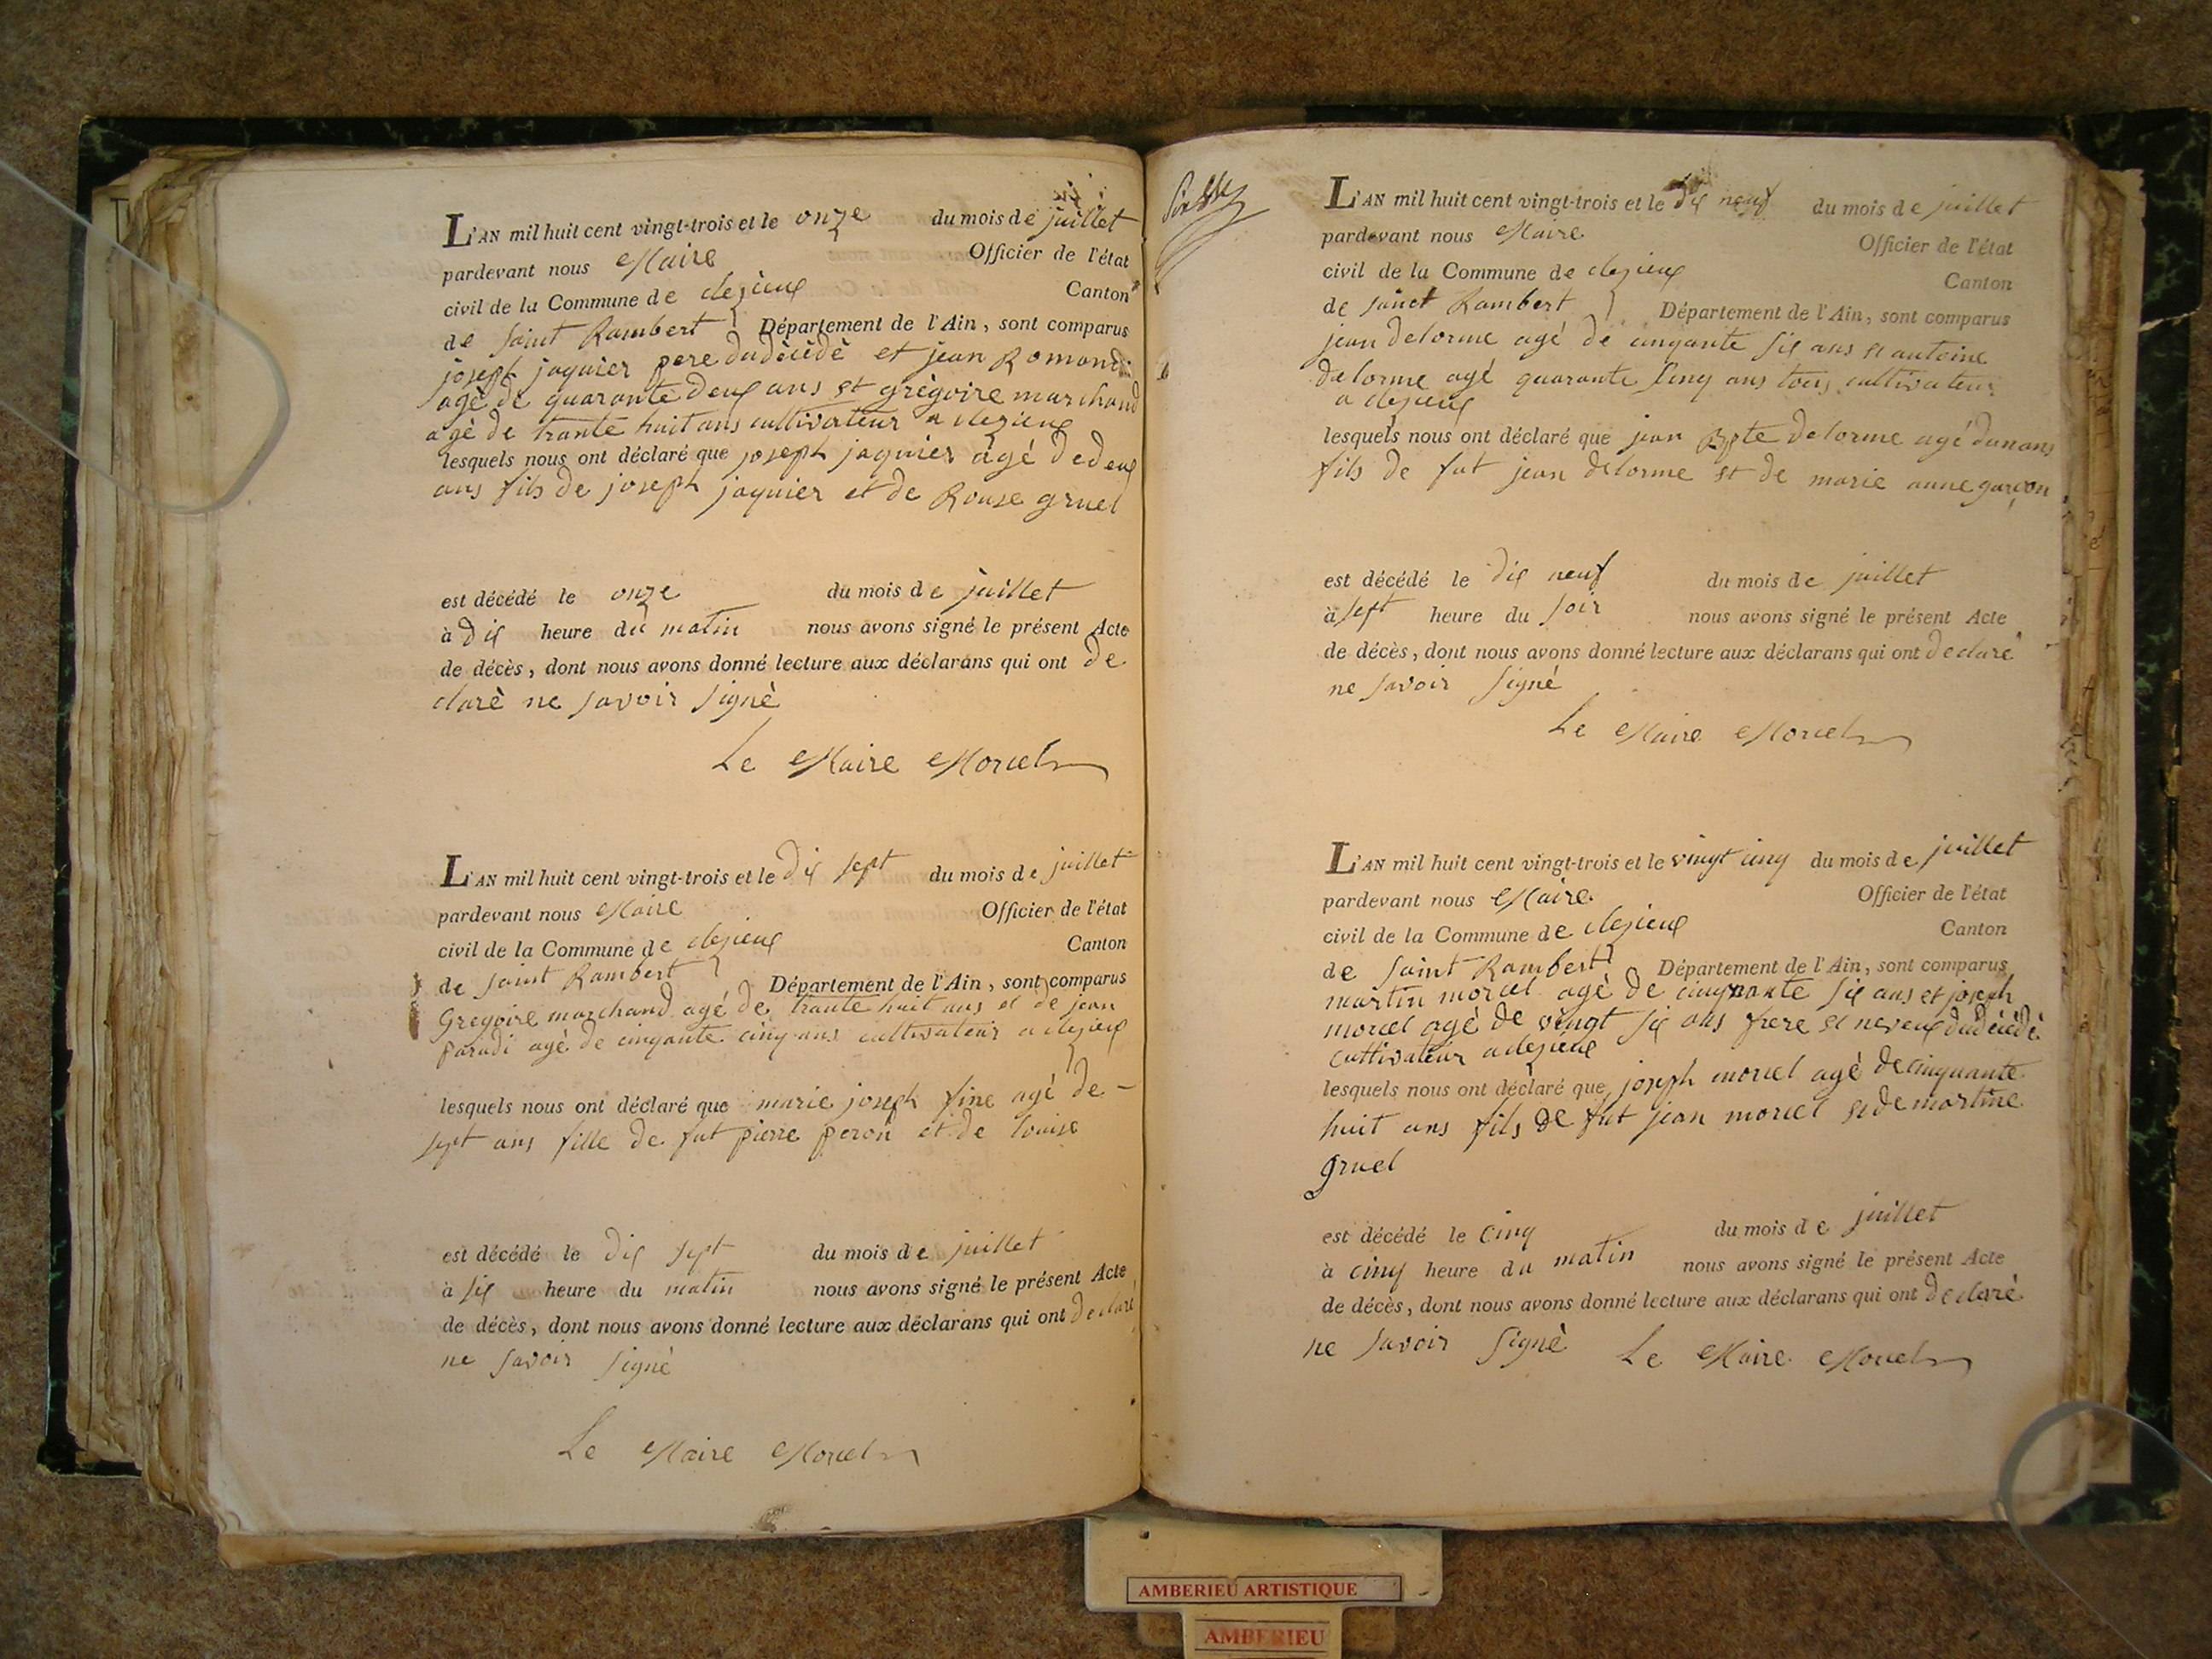 L'AN mil huit cent vingt-trois et le onze du mois de juillet
pardevant nous Maire Officier de l'état
civil de la Commune de clezieux Canton
de saint Rambert Département de l'Ain, sont comparus
joseph jaquier pere dudécédé et jean Romand
agè de quarante deux ans et grègoire marchand
agè de trante huit ans cultivateur a clezieux
lesquels nous ont déclaré que joseph jaquier agé dedeux
ans fils de joseph jaquier et de Rouse gruel
est décédé le onze du mois de juillet
à dix heure du matin nous avons signé le présent Acte
de décès, dont nous avons donné lecture aux déclarans qui ont de
clarè ne savoir signè
Le Maire Morcel
L'AN mil huit cent vingt-trois et le dix sept du mois de juillet
pardevant nous Maire Officier de l'état
civil de la Commune de clezieux Canton
de saint Rambert Département de l'Ain, sont comparus
Gregoire marchand agé de trante huit ans et de jean
paradi agè de cinqante cinq ans cultivateur a clezieux
lesquels nous ont déclaré que marie joseph fine agé de
sept ans fille de fut pierre peron et de louise
est décédé le dix sept du mois de juillet
à six heure du matin nous avons signé le présent Acte
de décès, dont nous avons donné lecture aux déclarans qui ont declaré
ne savoir signè
Le Maire Morcel
L'AN mil huit cent vingt-trois et le dix neuf du mois de juillet
pardevant nous Maire Officier de l'état
civil de la Commune de clezieux Canton
de sainct Rambert Département de l'Ain, sont comparus
jean delorme agé de cinqante six ans et antoine
delorme agé quarante cinq ans tous cultivateur
a clezieux
lesquels nous ont déclaré que jean Bpte delorme agé dunans
fils de fut jean delorme et de marie anne garçon
est décédé le dix neuf du mois de juillet
à sept heure du soir nous avons signé le présent Acte
de décès, dont nous avons donné lecture aux déclarans qui ont declaré
ne savoir signé
Le Maire Morcel
L'AN mil huit cent vingt-trois et le vingt cinq du mois de juillet
pardevant nous Maire Officier de l'état
civil de la Commune de clezieux Canton
de saint Rambert Département de l'Ain, sont comparus
martin morcel agé de cinqnante six ans et joseph
morcel agè de vingt six ans frere et neveux dudécédè
cultivateur a clezieux
lesquels nous ont déclaré que joseph morcel agè decinquante
huit ans fils de fut jean morcel et de martine
gruel
est décédé le cinq du mois de juillet
à cinq heure du matin nous avons signé le présent Acte
de décès, dont nous avons donné lecture aux déclarans qui ont declarè
ne savoir signè Le Maire Morcel
AMBERIEU ARTISTIQUE
AMBERIEU